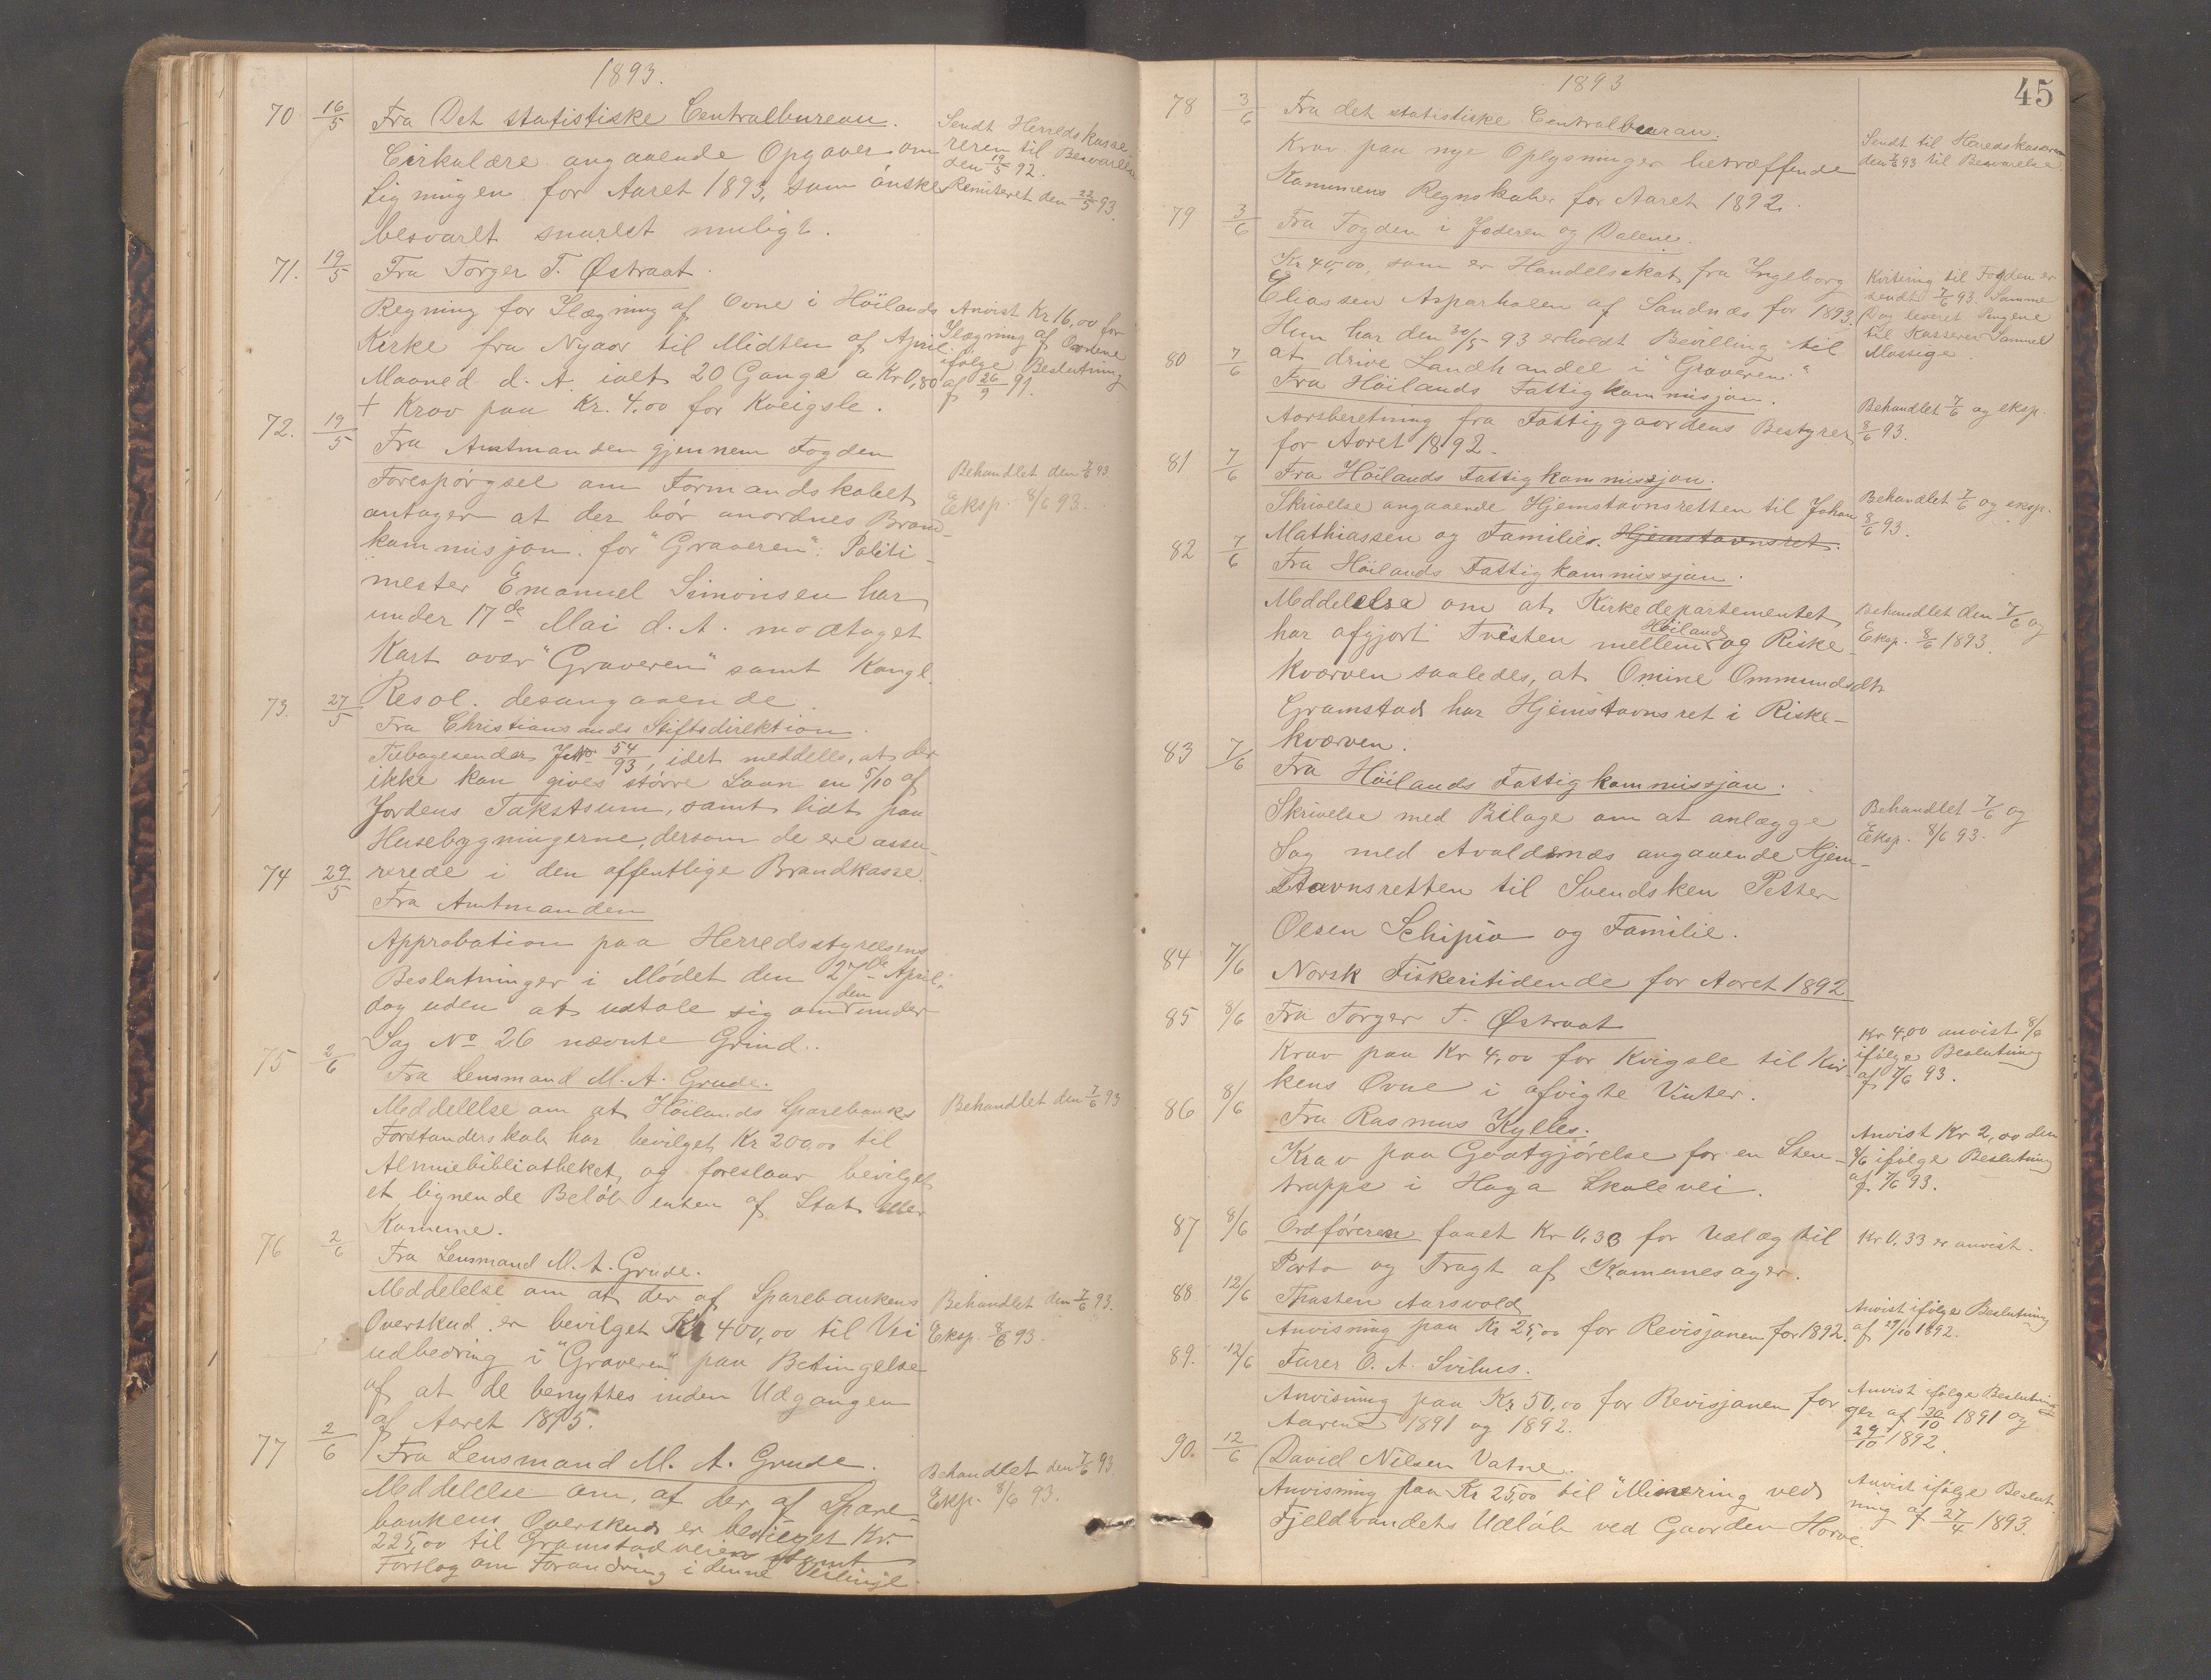 1893.
70 16/5 Fra Det statistiske Centralbureau.
Cirkulære angaaende Opgaver om
Ligningen for Aaret 1893, som ønskes
besvaret snarest muligt.
Sendt Herredskasse-
reren til Besvarelse
den 19/5 92.
Remiteret den 22/5 93.
71. 19/5 Fra Torger T. Østraat.
Regning for Ilægning af Ovne i Höilands
Kirke fra Nyaar til Midten af April
Maaned d. A. ialt 20 Gange a Kr 0,80
+ Krav paa Kr. 4,00 for Kveigsle.
Anvist Kr 16,00 for
Ilægning af Ovnene
ifølge Beslutning
af 26/9 91.
72. 19/5 Fra Amtmanden gjennem Fogden
Forespørgsel om Formandskabet
antager at der bør anordnes Brand-
kommisjon for "Graveren". Politi-
mester Emanuel Simonsen har
under 17de Mai d. A. modtaget
Kart over "Graveren" samt Kongl.
Resol. desangaaende.
Behandlet den 7/6 93
Eksp. 8/6 93.
73. 27/5 Fra Christiansands Stiftsdirektion.
Tilbagesender J.No 54/93, idet meddeles, at der
ikke kan gives større Laan en 5/10 af
Jordens Takstsum, samt lidt paa
Husebygningerne, dersom de ere assu-
rerede i den offentlige Brandkasse.
74 29/5 Fra Amtmanden
Approbation paa Herredsstyrelsens
Beslutninger i Mødet den 27de April,
dog uden at udtale sig om den under
Sag No 26 nævnte Grind..
75 2/6 Fra Lensmand M. A. Grude.
Meddelelse om at Höilands Sparebanks
Forstanderskab har bevilget Kr 200,00 til
Almuebibliotheket, og foreslaar bevilget
et lignende Beløb enten af Stat eller
Komune.
Behandlet den 7/6 93
76 2/6 Fra Lensmand M. A. Grude.
Meddelelse om at der af Sparebankens
Overskud er bevilget Kr 400,00 til Vei
udbedring i "Graveren" paa Betingelse
af at de benyttes inden Udgangen
af Aaret 1895.
Behandlet den 7/6 93.
Eksp. 8/6 93.
77 2/6 Fra Lensmand M. A. Grude.
Meddelelse om, at der af Spare-
bankens Overskud er bevilget Kr.
225,00 til Gramstadveien samt
Forslag om Forandring i denne Veilinje.
Behandlet den 7/6 93
Eksp. 8/6 93.
45
1893
78 3/6 Fra det statistiske Centralbureau.
Krav paa nye Oplysninger betræffende
Kommunens Regnskaber for Aaret 1892.
Sendt til Heredskasereren
den 7/6 93 til Besvarelse.
79 3/6 Fra Fogden i Jæderen og Dalene.
Kr 40,00, som er Handelsskat fra Ingeborg
Eliassen Asparholen af Sandnæs for 1893.
Hun har den 30/5 93 erholdt Bevilling til
at drive Landhandel i "Graveren."
Kvitering til Fogden er
sendt 7/6 93. Samme
Dag leveret Pengene
til Kasserer Samuel
Mossige.
80 7/6 Fra Höilands Fattigkommisjon.
Aarsberetning fra Fattiggaardens Bestyrer
for Aaret 1892.
Behandlet 7/6 og eksp.
8/6 93.
81 7/6 Fra Höilands Fattigkommissjon.
Skrivelse angaaende Hjemstavnsretten til Johan
Mathiassen og Familie. Hjemstavnsret.
Behandlet 7/6 og eksp.
8/6 93.
82 7/6 Fra Höilands Fattigkommissjon.
Meddelelse om at Kirkedepartementet
har afgjort Tvisten mellem Höiland og Riske-
kværven saaledes, at Omine Ommundsdtr
Gramstad har Hjemstavnsret i Riske-
kværven.
Behandlet den 7/6 og
Eksp. 8/6 1893.
83 7/6 Fra Höilands Fattigkommissjon.
Skrivelse med Bilage om at anlægge
Sag med Avaldsnæs angaaende Hjem-
stavnsretten til Svendsken Petter
Olsen Schipio og Familie.
Behandlet 7/6 og
Eksp. 8/6 93.
84 7/6 Norsk Fiskeritidende for Aaret 1892
85 8/6 Fra Torger T. Østraat
Krav paa Kr 4,00 for Kvigsle til Kir-
kens Ovne i afvigte Vinter.
Kr 4,00 anvist 8/6
ifølge Beslutning
af 7/6 93.
86 8/6 Fra Rasmus Kylles.
Krav paa Godtgjørelse for en Sten-
trappe i Hoga Skolevei.
Anvist Kr 2,00 den
8/6 ifølge Beslutning
af 7/6 93.
87 8/6 Ordføreren faaet Kr 0,33 for Udlæg til
Porto og Fragt af Komunesager.
Kr 0,33 er anvist.
88 12/6 Thosten Aarsvold
Anvisning paa Kr 25,00 for Revisjonen for 1892.
Anvist ifølge Beslutning
af 29/10 1892.
89. 12/6 Tarer O. A. Svilnes.
Anvisning paa Kr 50,00 for Revisjonen for
Aarene 1891 og 1892.
Anvist ifølge Beslutnin-
ger af 30/10 1891 og
29/10 1892.
90. 12/6 David Nilsen Vatne.
Anvisning paa Kr 25,00 til Minering ved
Fjeldvandets Udløb ved Gaarden Hove.
Anvist ifølge Beslut-
ning af 27/4 1893.